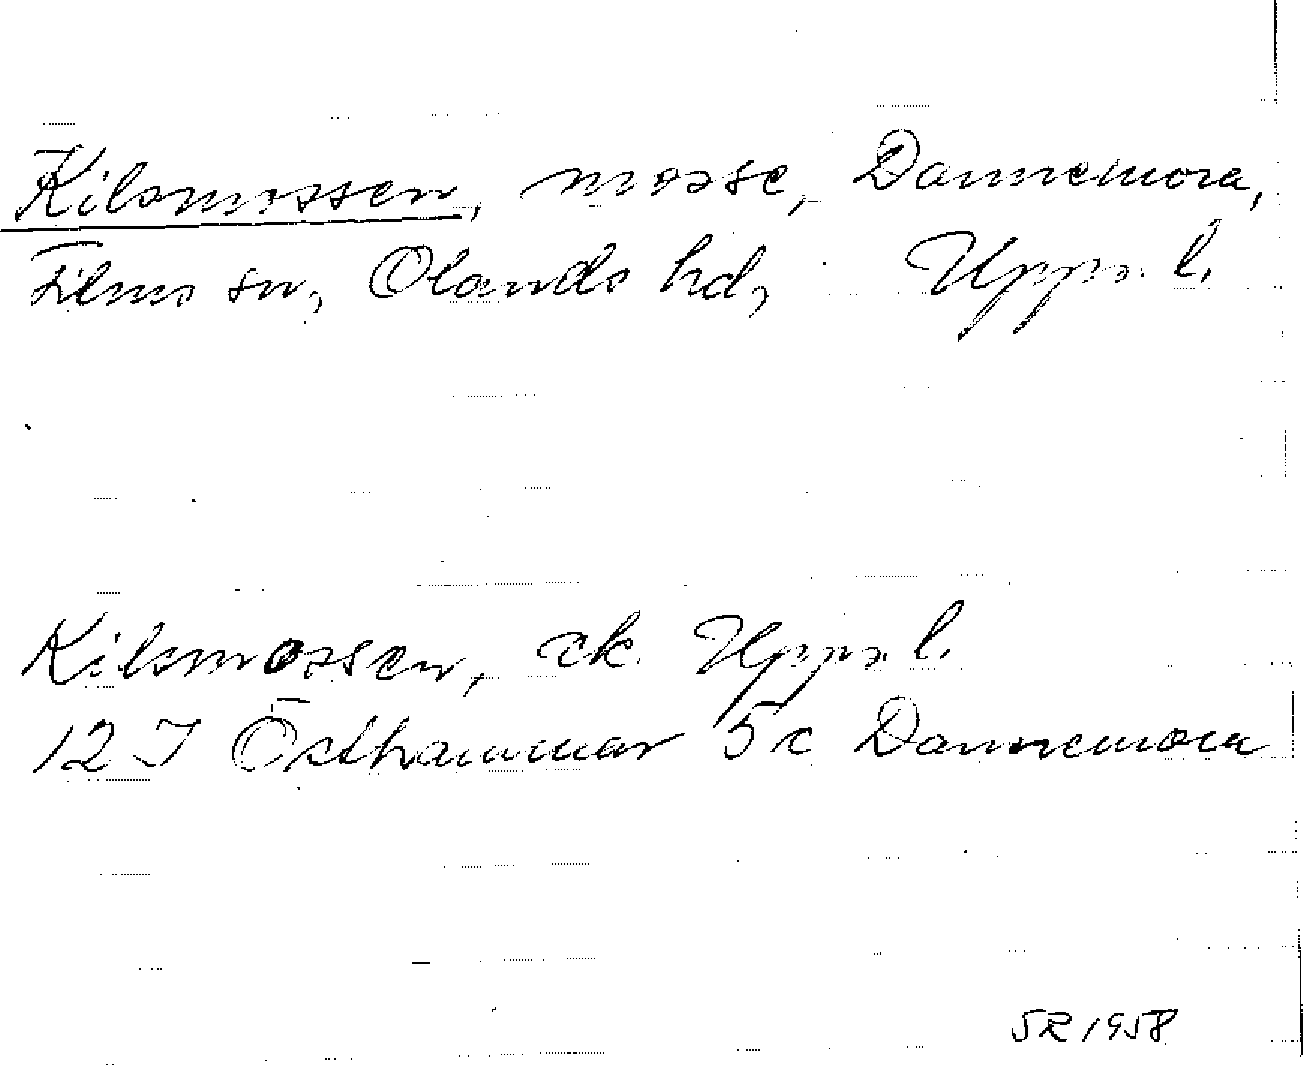 Kilsmossen, mosse, Dannemora,
Films sn, Olands hd, Upps. l.
Kilsmossen, ek. Upps. l.
12 I Östhammar 5 c Dannemora
SR 1958